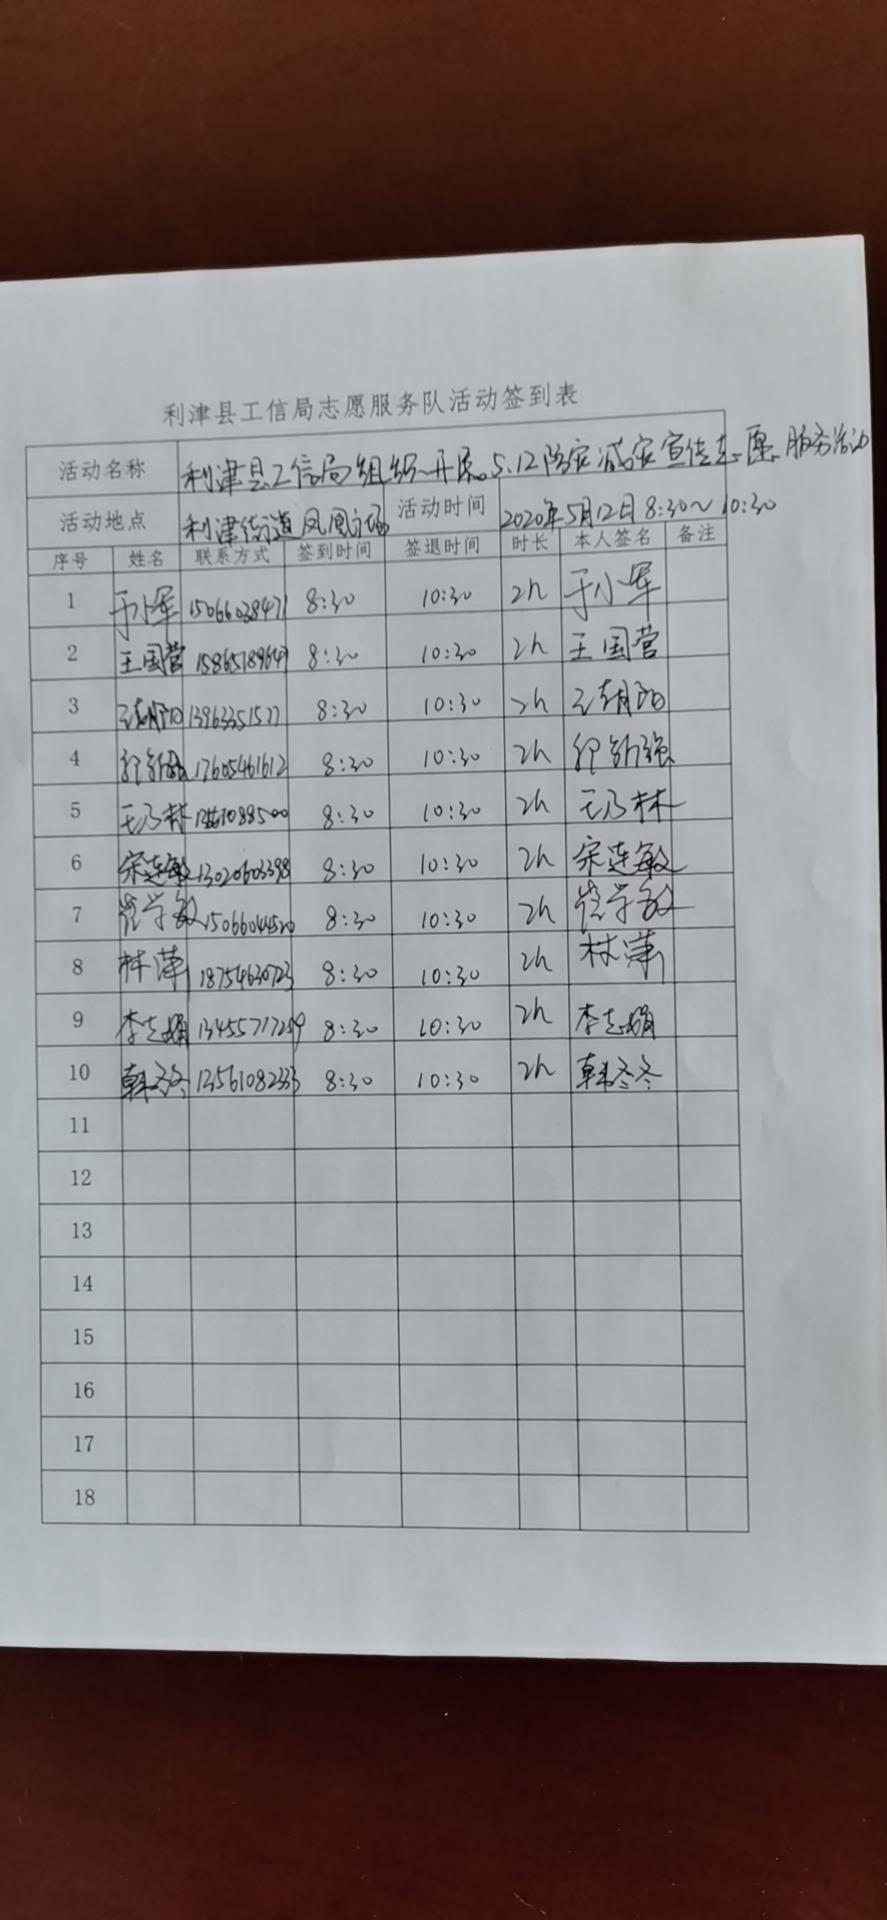 利津县工信局志愿服务队活动签到表
活动名称 利津县工信局组织开展5.12防灾减灾宣传志愿服务活动
活动地点 利津街道凤凰广场 活动时间 2020年5月12日8:30～10:30
序号 姓名 联系方式 签到时间 签退时间 时长 本人签名 备注
1 于小军 15066038471 8:30 10:30 2h 于小军
2 王国营 15865189649 8:30 10:30 2h 王国营
3 王朝阳 13963351577 8:30 10:30 2h 王朝阳
4 17605461612 8:30 10:30 2h
5 王乃林 8:30 10:30 2h 王乃林
6 宋连敏 13020603398 8:30 10:30 2h 宋连敏
7 崔学敏 15066044520 8:30 10:30 2h 崔学敏
8 林潇 18754630723 8:30 10:30 2h 林潇
9 李志娟 13455717259 8:30 10:30 2h 李志娟
10 韩冬冬 13561082333 8:30 10:30 2h 韩冬冬
11
12
13
14
15
16
17
18